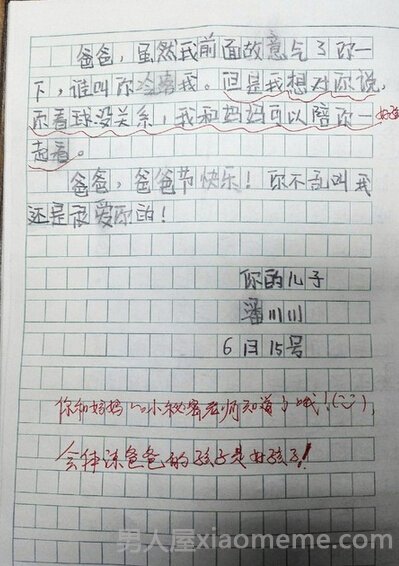 爸爸，虽然我前面故意气了你一
下，谁叫你冷落我。但是我想对你说，
你看球没关系，我和妈妈可以陪你一
起看。
爸爸，爸爸节快乐！你不乱叫我
还是很爱你的！
你的儿子
潘川川
6月15号
你和妈妈的小秘密老师知道了哦！
会体谅爸爸的孩子是好孩子！
男人屋xiaomeme.com